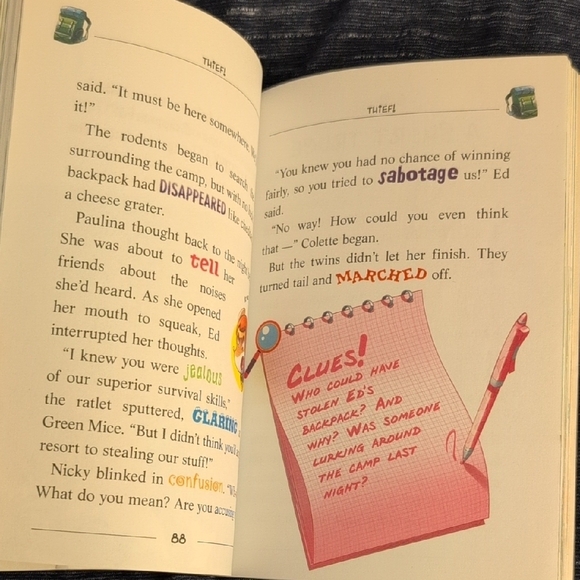 THIEF!
said. "It must be here somewhere.
it!"
The rodents began to search
surrounding the camp, but with no
backpack had DISAPPEARED like
a cheese grater.
Paulina thought back to the night
She was about to tell her
friends about the noises
she'd heard. As she opened
her mouth to squeak, Ed
interrupted her thoughts.
"I knew you were jealous
of our superior survival skills,"
the ratlet sputtered, GLARING
Green Mice. "But I didn't think you'd
resort to stealing our stuff!"
Nicky blinked in confusion.
What do you mean? Are you accusing
88
THIEF!
"You knew you had no chance of winning
fairly, so you tried to sabotage us!" Ed
said.
"No way! How could you even think
that —" Colette began.
But the twins didn't let her finish. They
turned tail and MARCHED off.
CLUES!
WHO COULD HAVE
STOLEN ED'S
BACKPACK? AND
WHY? WAS SOMEONE
LURKING AROUND
THE CAMP LAST
NIGHT?